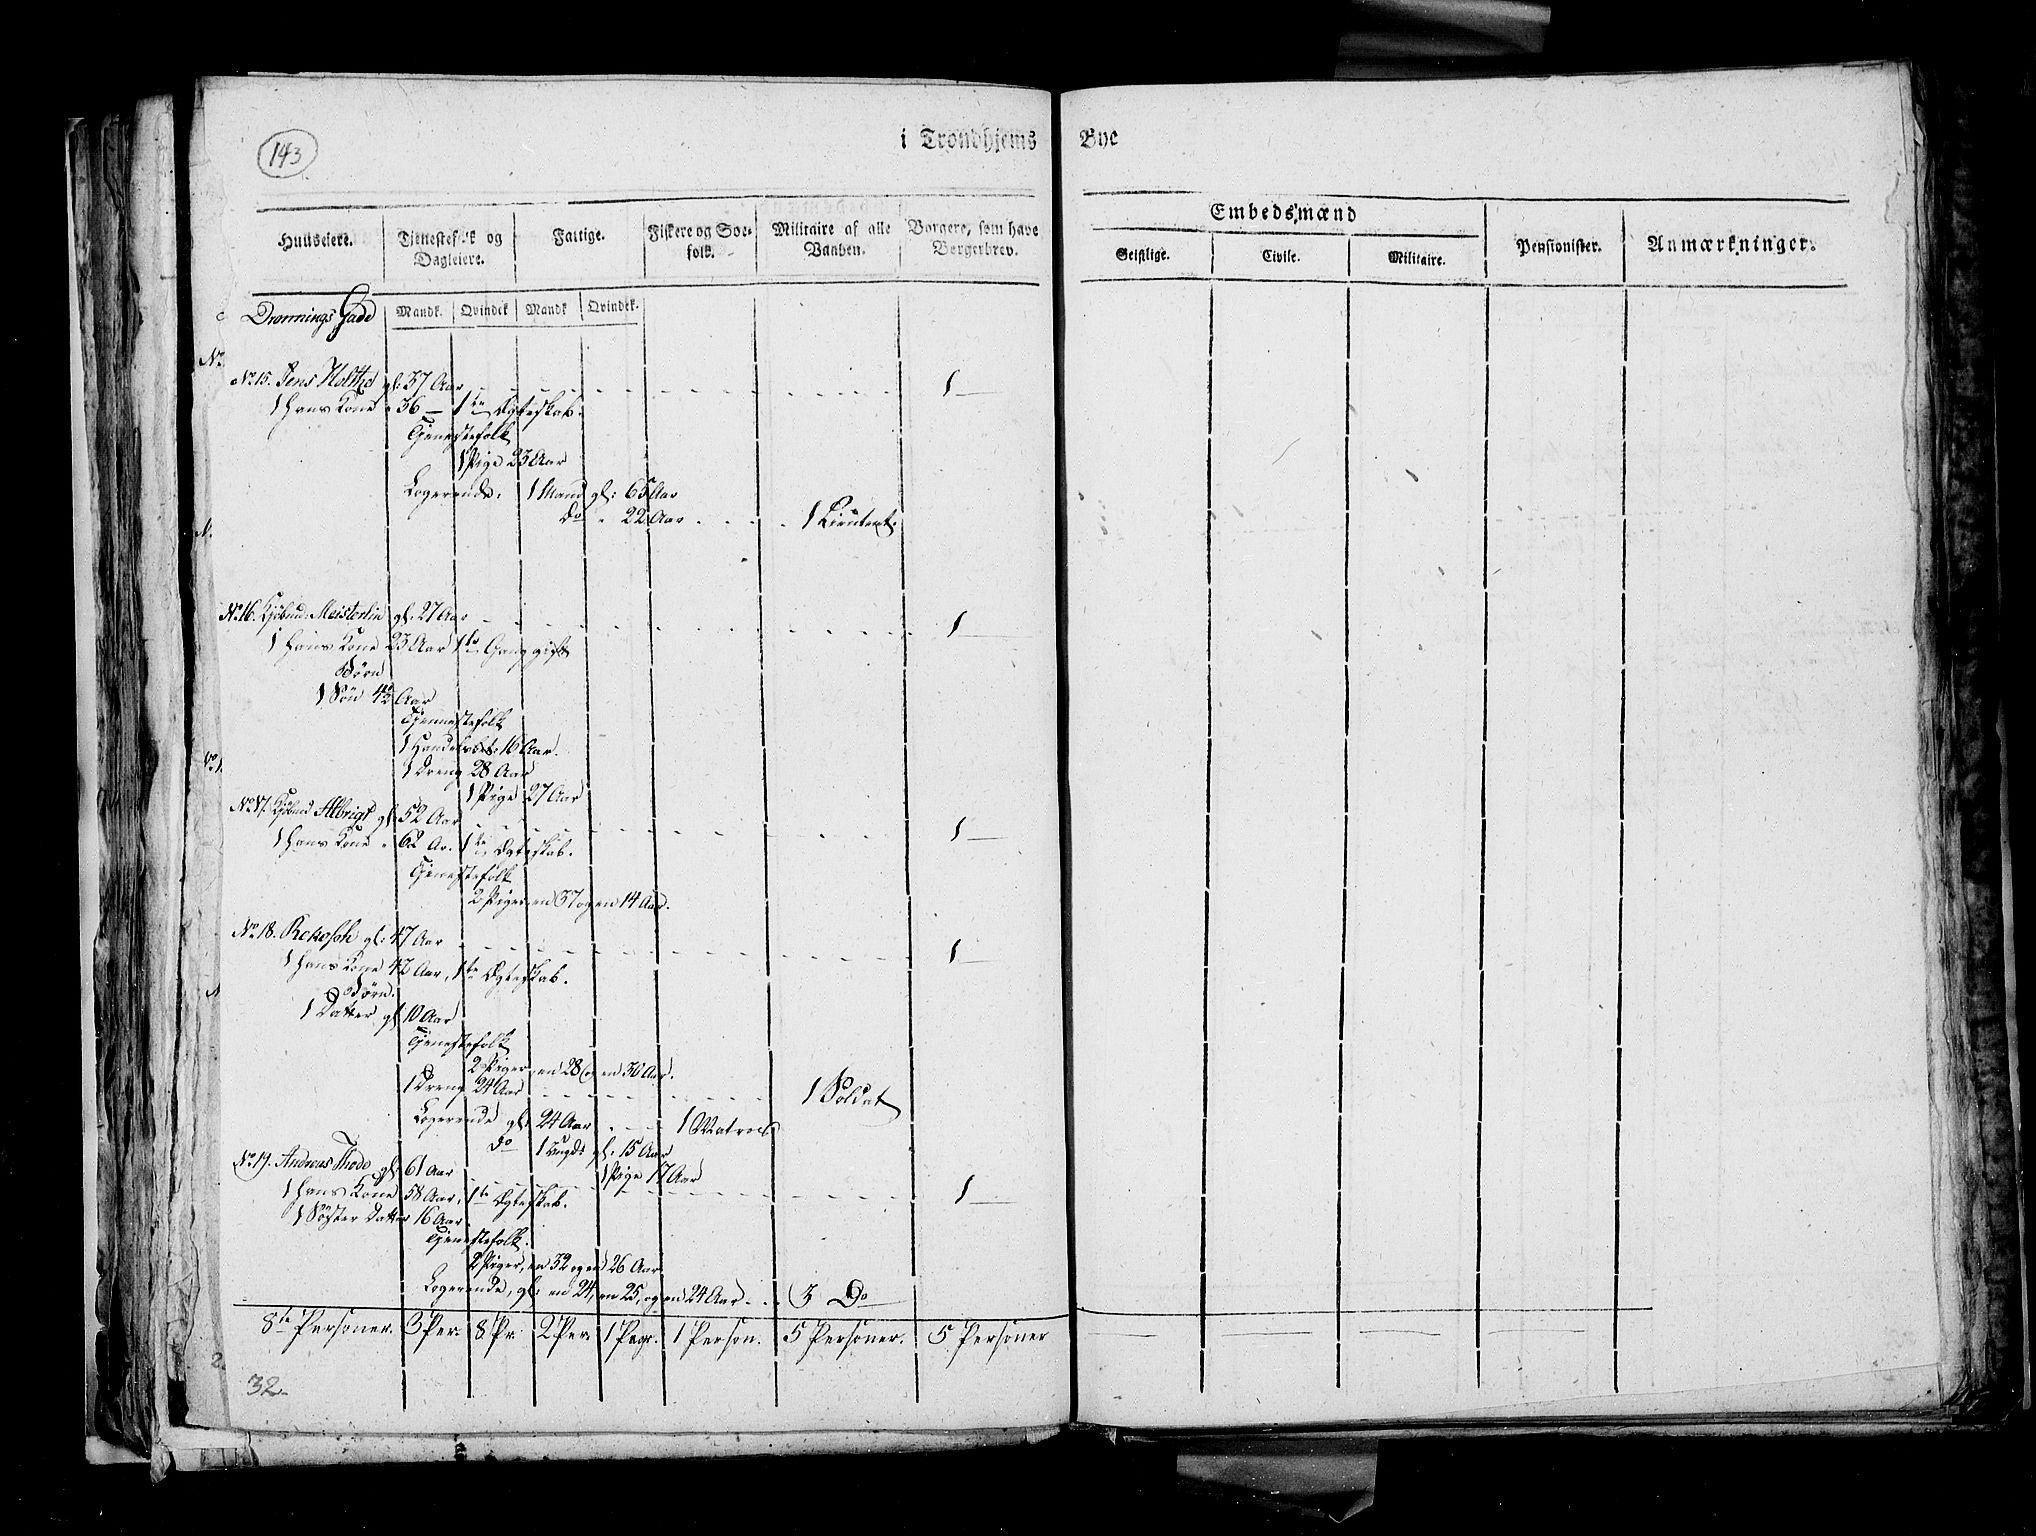 143
i Trondhjems Bye
Huuseiere.
Tienestefolk og Dagleiere.
Fattige.
Fiskere og Søe-folk.
Militaire af alle Vaaben.
Borgere, som have Borgerbrev.
Embedsmænd
Geistlige.
Civile.
Militaire.
Pensionister.
Anmærkninger.
Dronnings Gade
Mandk. Qvindek Mandk Qvindek.
No 15. Jens Holthe gl: 37 Aar 1
1 hans Kone " 36 — 1te Ægteskab.
Tjenestefolk
1 Pige 23 Aar
Logerende. 1 Mand gl: 65 Aar
Do " 22 Aar 1 Lieutent.
No 16. Kjöbmd: Meisterlin gl: 27 Aar 1
1 hans Kone 23 Aar 1te Gang gift
Börn
1 Sön 4½ Aar
Tjennestefolk
1 Handelsbt: 16 Aar.
1 Dreng 28 Aar
1 Pige 27 Aar
No 17. Kjöbmd Albrigt gl: 52 Aar 1
1 hans Kone " 62 Ar. 1te Ægteskab.
Tjenestefolk
2 Piger en 37 og en 14 Aar.
No 18. gl: 47 Aar 1
1 hans Kone 42 Aar, 1te Ægteskab.
Börn.
1 Datter gl 10 Aar
Tjenestefolk
2 Piger, en 28 og en 30 Aar.
1 Dreng 24 Aar 1 Soldat
Logerende gl: 24 Aar 1 Matros
Do 1 gl: 15 Aar
1 Pige 17 Aar
No 19. Andreas Thode gl: 61 Aar 1
1 hans Kone 58 Aar, 1te Ægteskab.
1 Söster Datter 16 Aar.
Tjenestefolk.
2 Piger, en 32 og en 26 Aar
Logerende, gl: en 24, en 25, og en 24 Aar 3 Do
8te Personer. 3 Per. 8 Pr. 2 Per. 1 1 Person. 5 Personer. 5 Personer
32